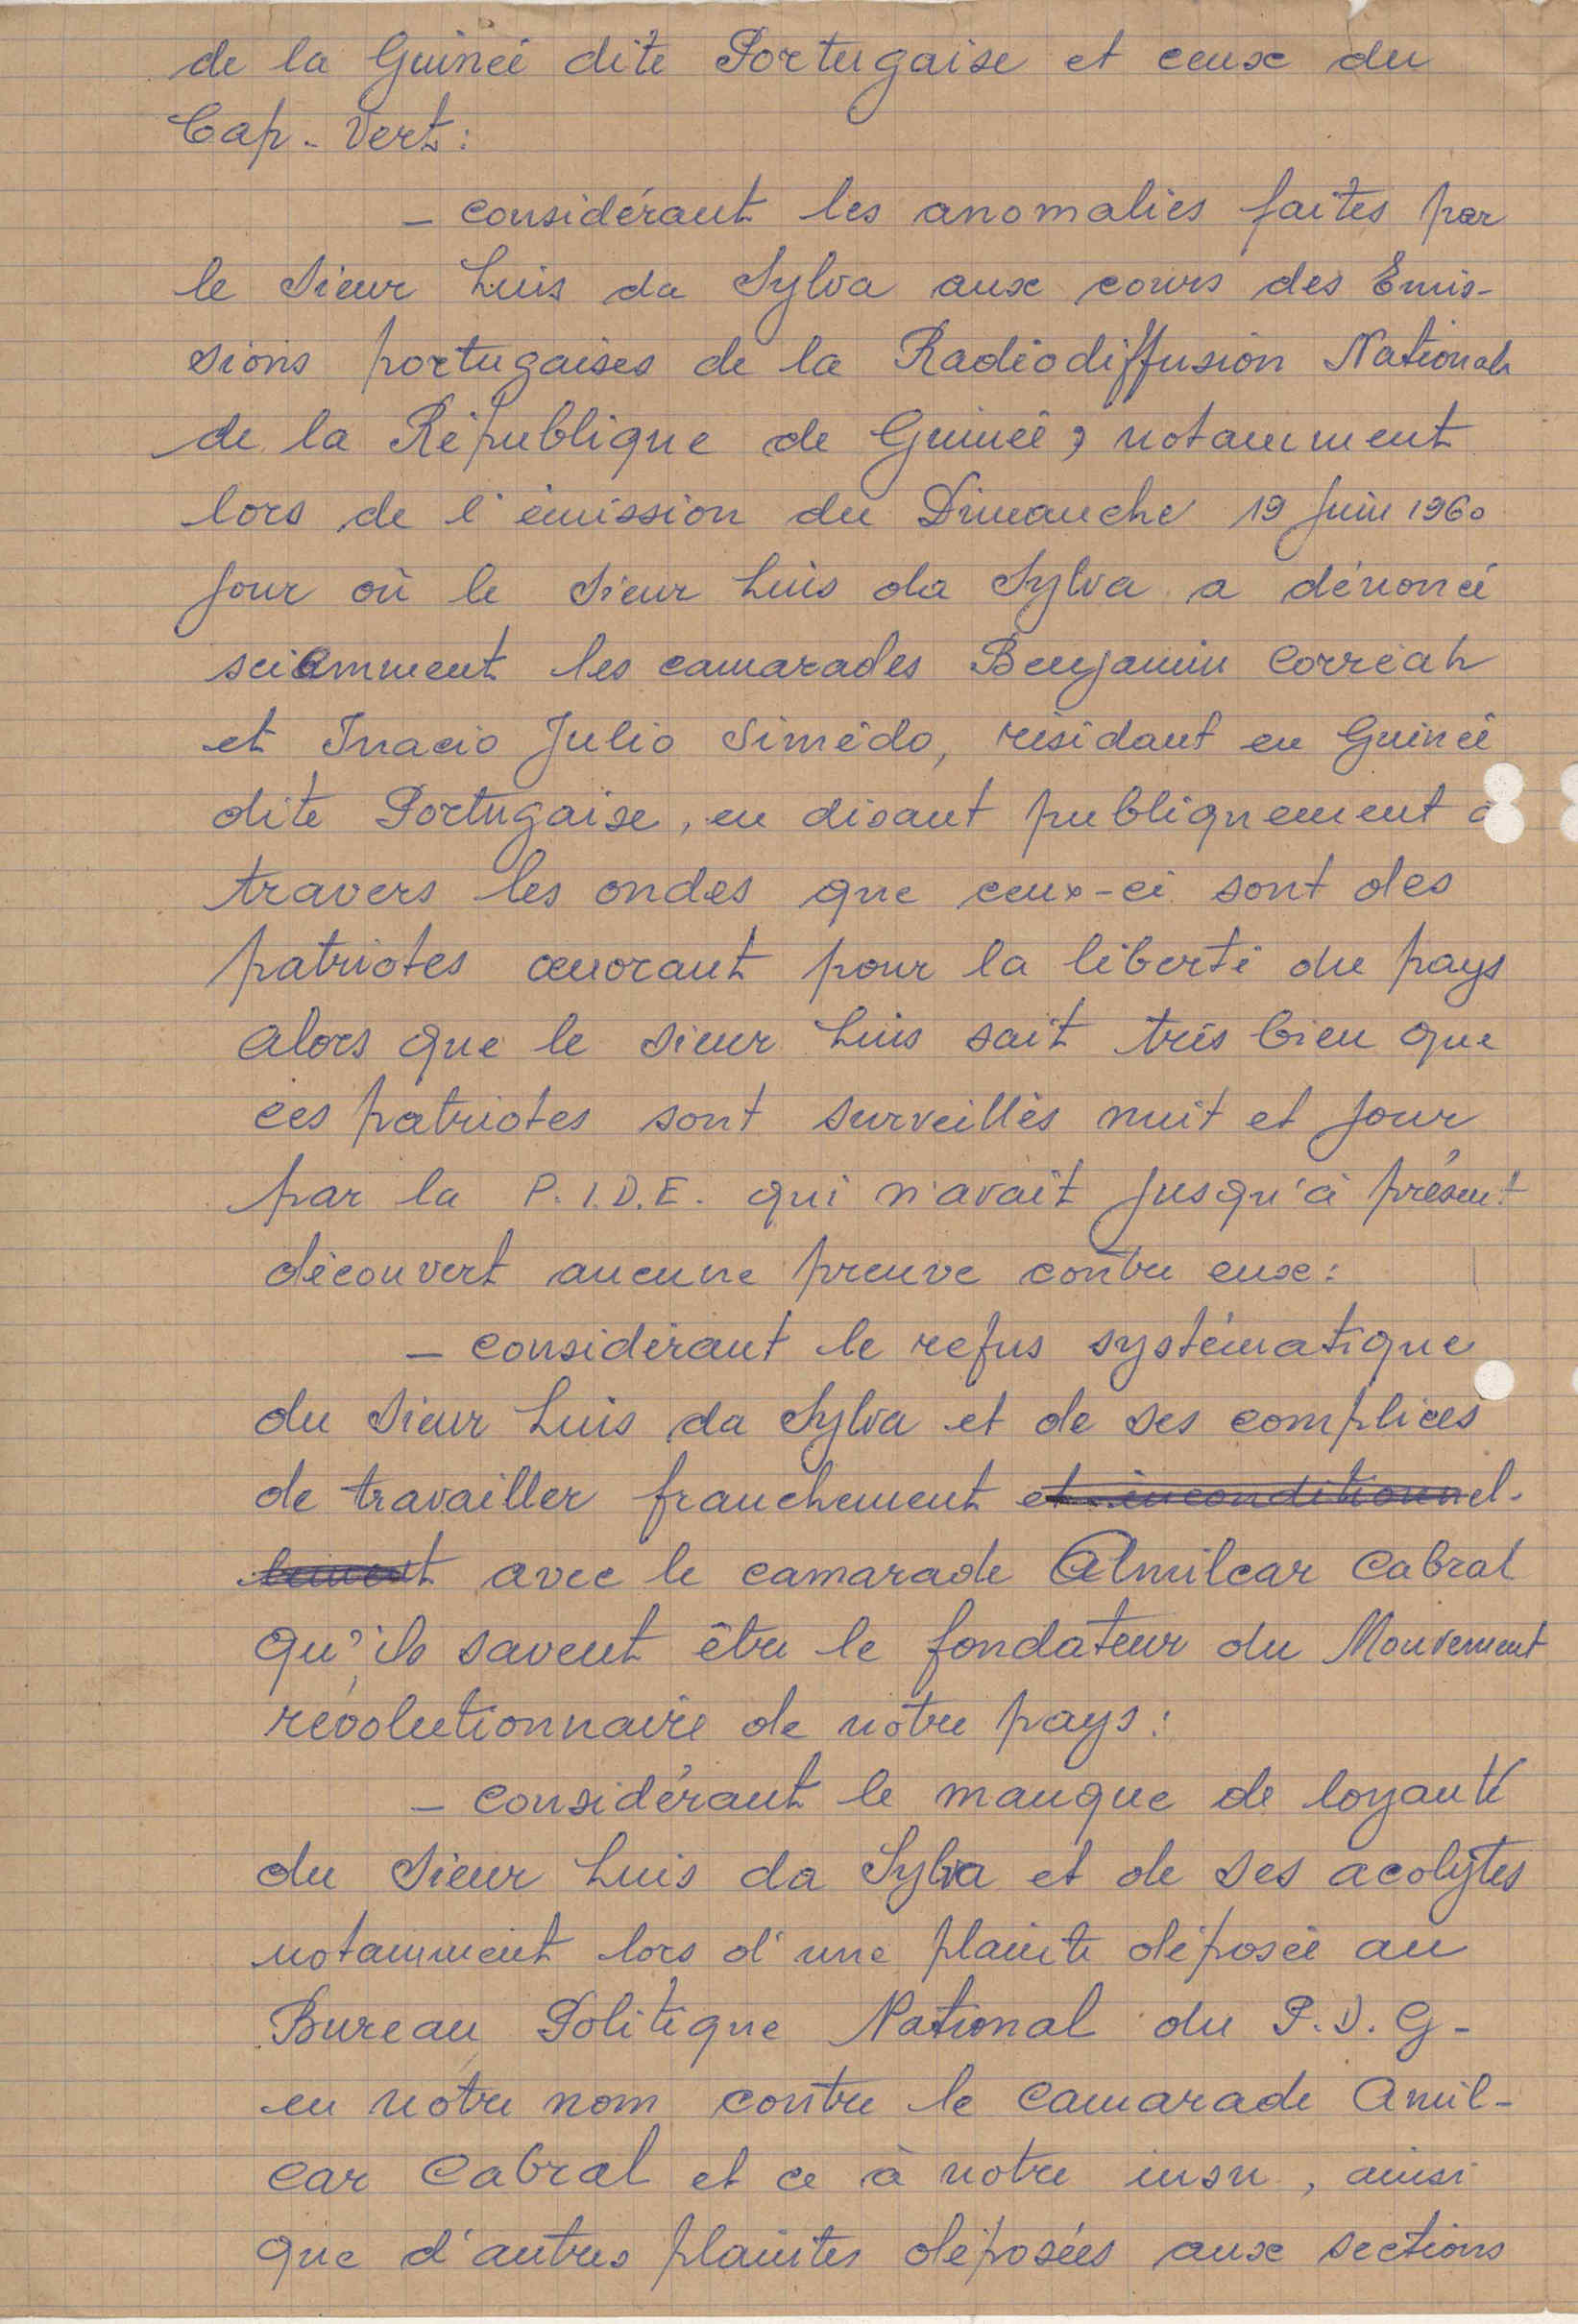 de la Guinée dite Portugaise et ceux du
Cap-Vert:
- considérant les anomalies faites par
le sieur Luis da Sylva aux cours des Emis-
sions portugaises de la Radiodiffusion Nationale
de la République de Guinée, notamment
lors de l'émission du Dimanche 19 Juin 1960
jour où le sieur Luis da Sylva a dénoncé
sciamment les camarades Benjamin Corréah
et Inacio Julio Simédo, résidant en Guinée
dite Portugaise, en disant publiquement à
travers les ondes que ceux-ci sont des
patriotes œuvrant pour la liberté du pays
alors que le sieur Luis sait très bien que
ces patriotes sont surveillés nuit et jour
par la P.I.D.E. qui n'avait jusqu'à présent
découvert aucune preuve contre eux:
- considérant le refus systématique
du sieur Luis da Sylva et de ses complices
de travailler franchement et inconditionnel-
lement avec le camarade Almilcar Cabral
qu'ils savent être le fondateur du Mouvement
révolutionnaire de notre pays:
- considérant le manque de loyauté
du sieur Luis da Sylva et de ses acolytes
notamment lors d'une plainte déposée au
Bureau Politique National du P.D.G-
en notre nom contre le camarade Amil-
car Cabral et ce à notre insu, ainsi
que d'autres plaintes déposées aux sections